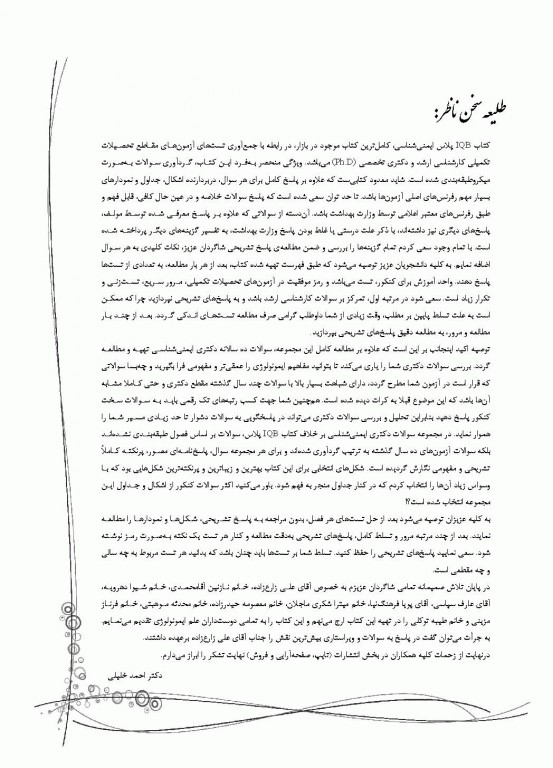 طلیعه سخن ناظر:
کتاب IQB پلاس ایمنی‌شناسی، کامل‌ترین کتاب موجود در بازار، در رابطه با جمع‌آوری تست‌های آزمون‌های مقاطع تحصیلات
تکمیلی کارشناسی ارشد و دکتری تخصصی (Ph.D) می‌باشد. ویژگی منحصر به‌فرد این کتاب، گردآوری سوالات به‌صورت
میکروطبقه‌بندی شده است. شاید معدود کتابی‌ست که علاوه بر پاسخ کامل برای هر سوال، دربردارنده اشکال، جداول و نمودارهای
بسیار مهم رفرنس‌های اصلی آزمون‌ها باشد. تا حد توان سعی شده است که پاسخ سوالات خلاصه و در عین حال کافی، قابل فهم و
طبق رفرنس‌های معتبر اعلامی توسط وزارت بهداشت باشد. آن‌دسته از سوالاتی که علاوه بر پاسخ معرفی شده توسط مولف،
پاسخ‌های دیگری نیز داشته‌اند، با ذکر علت درستی یا غلط بودن پاسخ وزارت بهداشت، به تفسیر گزینه‌های دیگر پرداخته شده
است. با تمام وجود سعی کردم تمام گزینه‌ها را بررسی و ضمن مطالعه‌ی پاسخ تشریحی شاگردان عزیز، نکات کلیدی به هر سوال
اضافه نمایم. به کلیه دانشجویان عزیز توصیه می‌شود که طبق فهرست تهیه شده کتاب، بعد از هر بار مطالعه، به تعدادی از تست‌ها
پاسخ دهند. واحد آموزش برای کنکور، تست می‌باشد و رمز موفقیت در آزمون‌های تحصیلات تکمیلی، مرور سریع، تست‌زنی و
تکرار زیاد است. سعی شود در مرتبه اول، تمرکز بر سوالات کارشناسی ارشد باشد و به پاسخ‌های تشریحی نپردازید، چرا که ممکن
است به علت تسلط پایین بر مطلب، وقت زیادی از شما داوطلب گرامی صرف مطالعه تست‌های اندکی گردد. بعد از چند بار
مطالعه و مرور، به مطالعه دقیق پاسخ‌های تشریحی بپردازید.
توصیه اکید اینجانب بر این است که علاوه بر مطالعه کامل این مجموعه، سوالات ده سالانه دکتری ایمنی‌شناسی تهیه و مطالعه
گردد. بررسی سوالات دکتری شما را یاری می‌کند تا بتوانید مفاهیم ایمونولوژی را عمقی‌تر و مفهومی فرا بگیرید و چه‌بسا سوالاتی
که قرار است در آزمون شما مطرح گردد، دارای شباهت بسیار بالا با سوالات چند سال گذشته مقطع دکتری و حتی کاملا مشابه
آن‌ها باشد که این موضوع قبلا به کرات دیده شده است. هم‌چنین شما جهت کسب رتبه‌های تک رقمی باید به سوالات سخت
کنکور پاسخ دهید بنابراین تحلیل و بررسی سوالات دکتری می‌تواند در پاسخگویی به سوالات دشوار تا حد زیادی مسیر شما را
هموار نماید. در مجموعه سوالات دکتری ایمنی‌شناسی بر خلاف کتاب IQB پلاس، سوالات بر اساس فصول طبقه‌بندی نشده‌اند
بلکه سوالات آزمون‌های ده سال گذشته به ترتیب گردآوری شده‌اند و برای هر مجموعه سوال، پاسخ‌نامه‌ای مصور، پرنکته کاملاً
تشریحی و مفهومی نگارش گردیده است. شکل‌های انتخابی برای این کتاب بهترین و زیباترین و پرنکته‌ترین شکل‌هایی بود که با
وسواس زیاد آن‌ها را انتخاب کردم که در کنار جداول منجر به فهم شود. باور می‌کنید اکثر سوالات کنکور از اشکال و جداول این
مجموعه انتخاب شده است؟!
به کلیه عزیزان توصیه می‌شود بعد از حل تست‌های هر فصل، بدون مراجعه به پاسخ تشریحی، شکل‌ها و نمودارها را مطالعه
نمایند. بعد از چند مرتبه مرور و تسلط کامل، پاسخ‌های تشریحی به‌دقت مطالعه و کنار هر تست یک نکته به‌صورت رمز نوشته
شود. سعی نمایید پاسخ‌های تشریحی را حفظ کنید. تسلط شما بر تست‌ها باید چنان باشد که بدانید هر تست مربوط به چه سالی
و چه مقطعی است.
در پایان تلاش صمیمانه تمامی شاگردان عزیزم به خصوص آقای علی زارع‌زاده، خانم نازنین آقامحمدی، خانم شیوا دهرویه،
آقای عارف سیاسی، آقای پویا فرهنگ‌نیا، خانم میترا شکری ماجلان، خانم معصومه حیدرزاده، خانم محدثه موهبتی، خانم فرناز
مزینی و خانم طیبه توکلی را در تهیه این کتاب ارج می‌نهم و این کتاب را به تمامی دوست‌داران علم ایمونولوژی تقدیم می‌نمایم.
به جرأت می‌توان گفت در پاسخ به سوالات و ویراستاری بیش‌ترین نقش را جناب آقای علی زارع‌زاده برعهده داشتند.
درنهایت از زحمات کلیه همکاران در بخش انتشارات (تایپ، صفحه‌آرایی و فروش) نهایت تشکر را ابراز می‌دارم.
دکتر احمد خلیلی